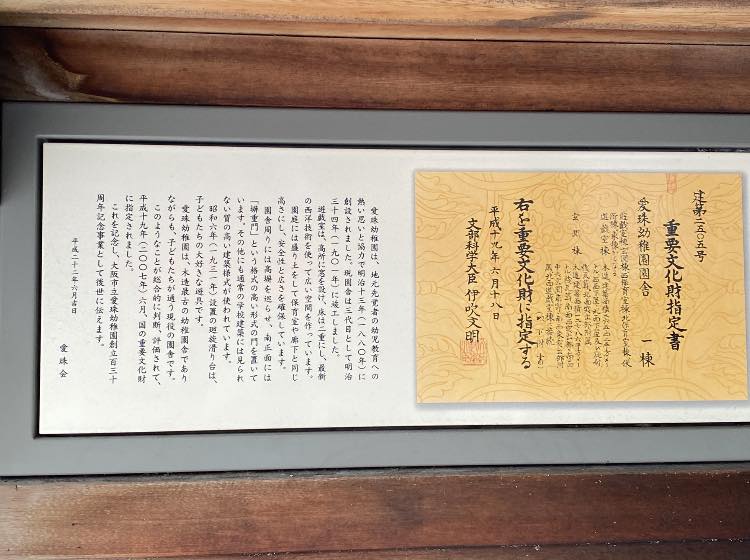 建第二五〇五号
重要文化財指定書
愛珠幼稚園園舎 一棟
遊戯室棟
玄関棟
右を重要文化財に指定する
平成十九年六月十八日
文部科学大臣 伊吹文明
愛珠幼稚園は、地元先覚者の幼児教育への
熱い思いと協力で明治十三年(一八八〇年)に
創設されました。現園舎は三代目として明治
三十四年(一九〇一年)に竣工しました。
遊戯室は、高所に窓を設け、床は二重にし、最新
の西洋技術を使って広い空間を作っています。
園庭には盛り土をして保育室や廊下と同じ
高さにし、安全性と広さを確保しています。
園舎周りには高塀を巡らせ、南正面には
「塀重門」という格式の高い形式の門を置いて
います。その他にも通常の学校建築には見られ
ない質の高い建築様式が使われています。
昭和六年(一九三一年)設置の廻旋滑り台は、
子どもたちの大好きな遊具です。
愛珠幼稚園は、木造最古の幼稚園舎であり
ながらも、子どもたちが通う現役の園舎です。
このようなことが総合的に判断、評価されて、
平成十九年(二〇〇七年)六月、国の重要文化財
に指定されました。
これを記念し、大阪市立愛珠幼稚園創立百三十
周年記念事業として後世に伝えます。
平成二十二年六月吉日
愛珠会